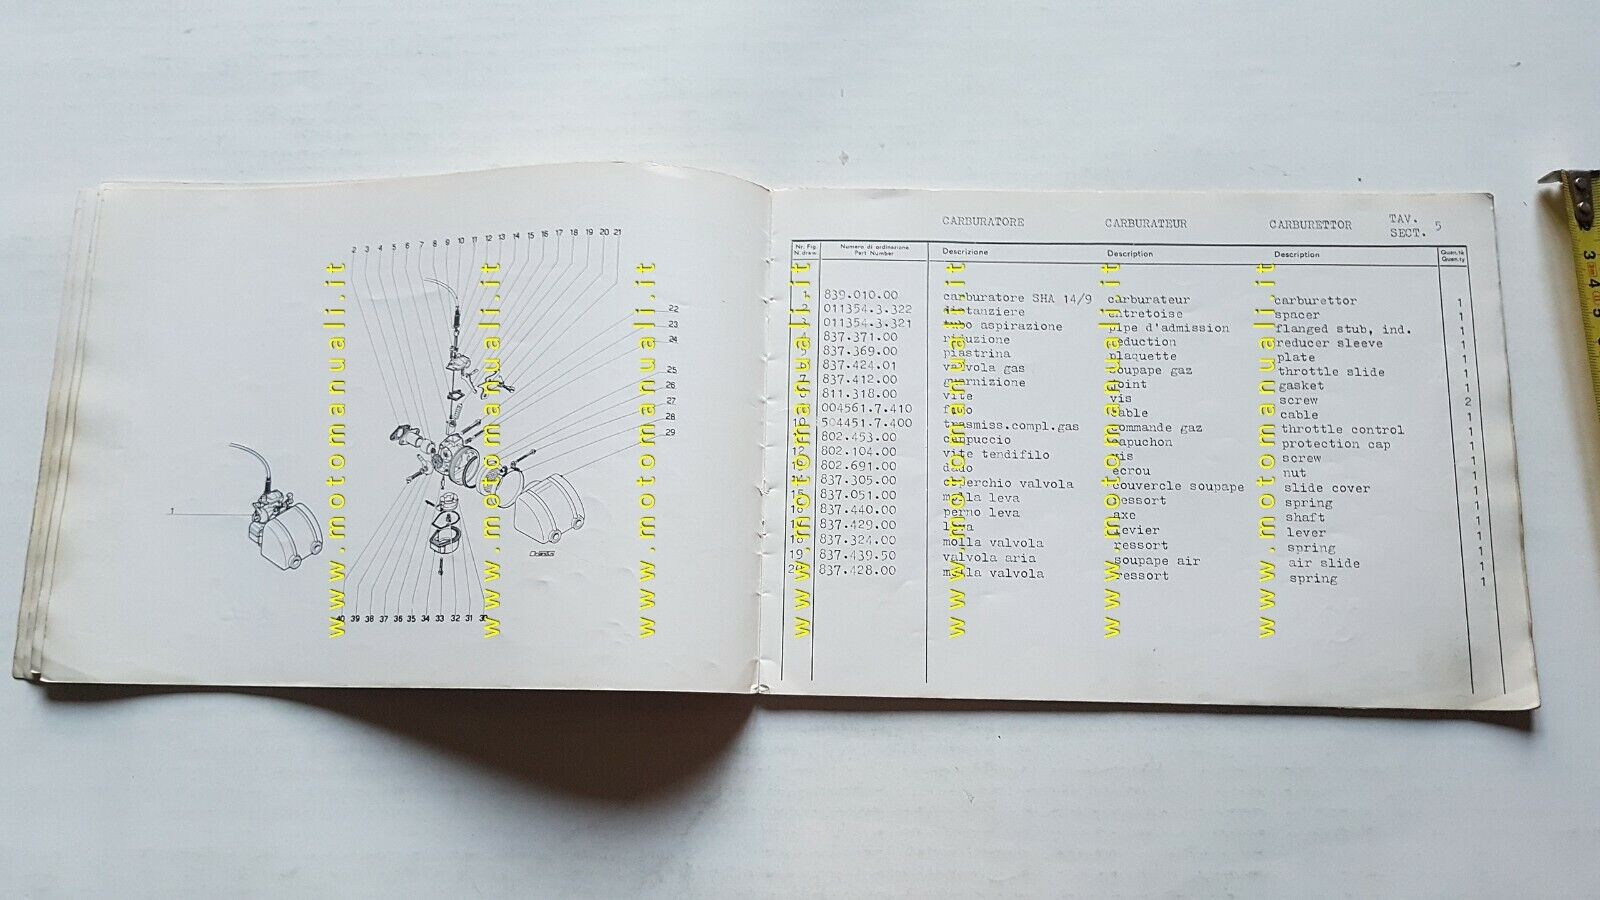 2 3 4 5 6 7 8 9 10 11 12 13 14 15 16 17 18 19 20 21
22
23
24
25
26
27
28
29
1
40 39 38 37 36 35 34 33 32 31 30
www.motomanuali.it
www.motomanuali.it
www.motomanuali.it
CARBURATORE CARBURATEUR CARBURETTOR TAV. SECT. 5
Nr. Fig. N. draw. Numero di ordinazione Part Number Descrizione Description Description Quantità Quan.ty
1 839.010.00 carburatore SHA 14/9 carburateur carburettor 1
2 011354.3.322 distanziere entretoise spacer 1
3 011354.3.321 tubo aspirazione pipe d'admission flanged stub, ind. 1
4 837.371.00 riduzione reduction reducer sleeve 1
5 837.369.00 piastrina plaquette plate 1
6 837.424.01 valvola gas soupape gaz throttle slide 1
7 837.412.00 guarnizione joint gasket 1
8 811.318.00 vite vis screw 2
004561.7.410 cable cable 1
10 504451.7.400 trasmiss.compl.gas commande gaz throttle control 1
802.453.00 cappuccio capuchon protection cap 1
12 802.104.00 vite tendifilo vis screw 1
802.691.00 dado ecrou nut 1
837.305.00 coperchio valvola couvercle soupape slide cover 1
15 837.051.00 molla leva ressort spring 1
16 837.440.00 perno leva axe shaft 1
17 837.429.00 leva levier lever 1
18 837.324.00 molla valvola ressort spring 1
19 837.439.50 valvola aria soupape air air slide 1
20 837.428.00 molla valvola ressort spring 1
www.motomanuali.it
www.motomanuali.it
www.motomanuali.it
www.motomanuali.it
3 4 5